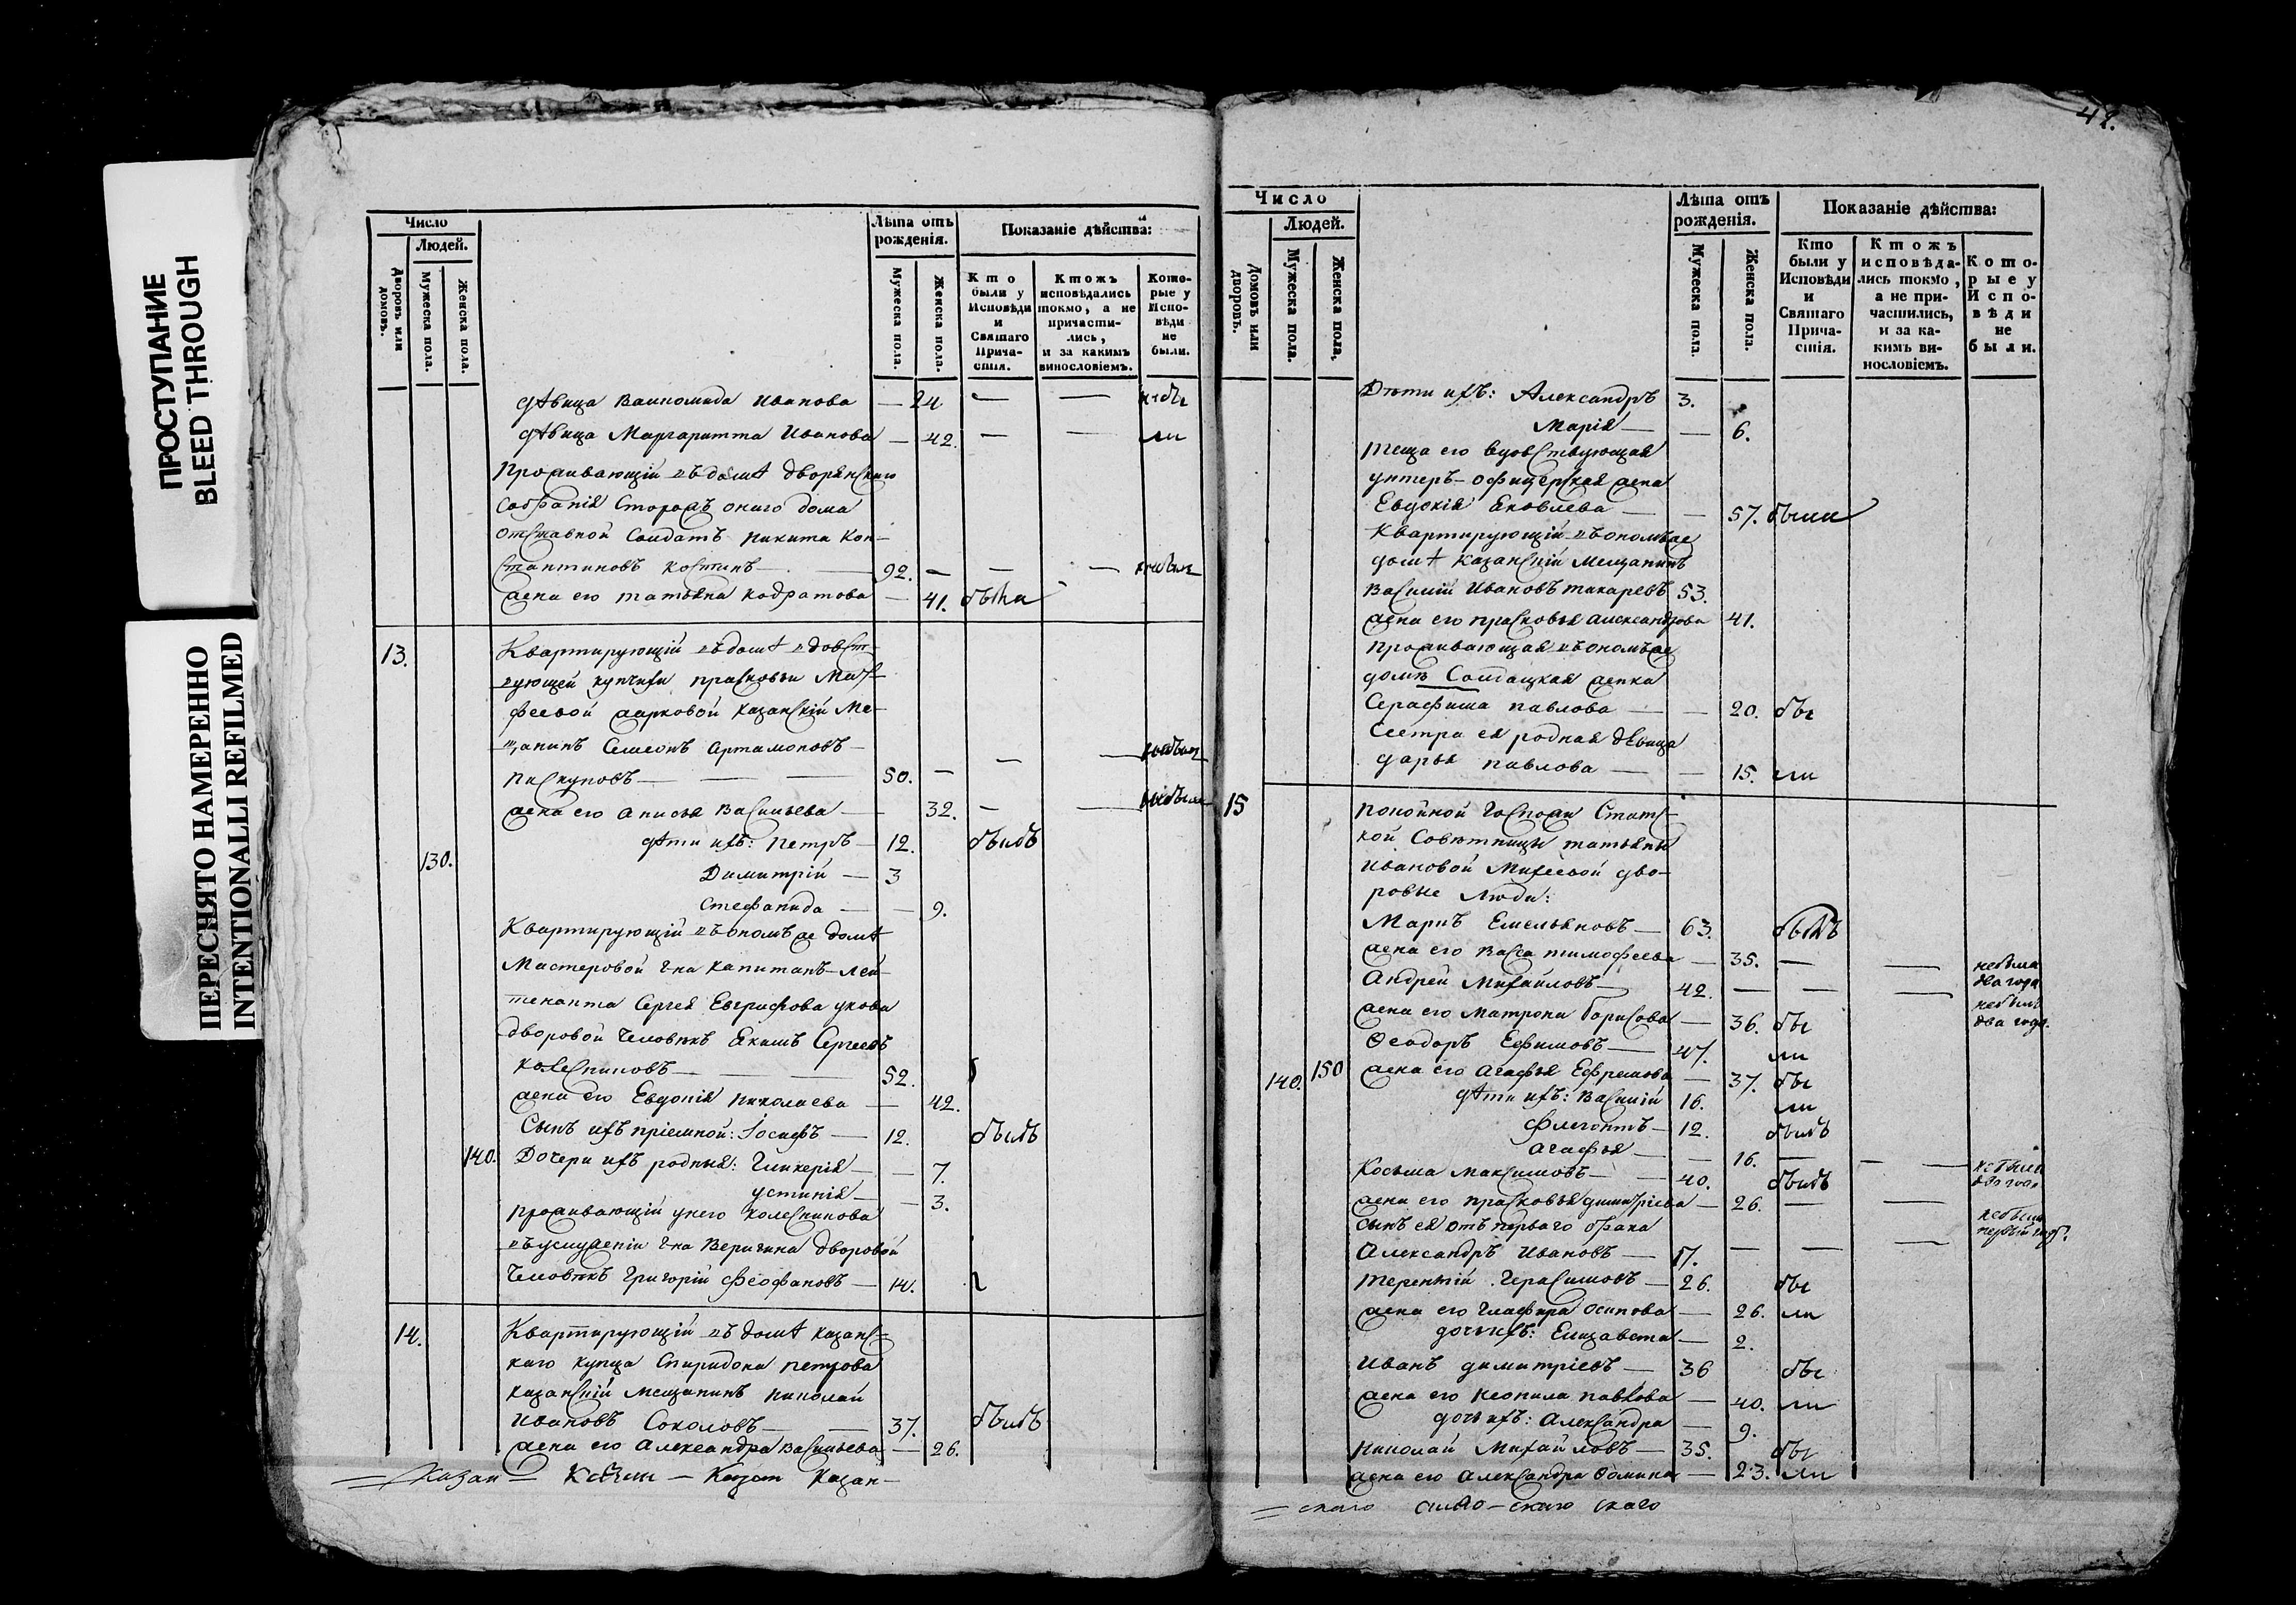 ПРОСТУПАНИЕ
BLEED THROUGH
ПЕРЕСНЯТО НАМЕРЕННО
INTENTIONALLI REFILMED
Число
Людей.
Дворовъ или домовъ.
Мужеска пола.
Женска пола.
Лѣта отъ рожденія.
Мужеска пола.
Женска пола.
Показаніе дѣйства:
Кто были у Исповѣди и Святаго Причастія.
Ктожъ исповѣдались токмо, а не причастились, и за какимъ винословіемъ.
Которые у Исповѣди не были.
дѣвица Иванова — 24 — —
дѣвица Маргаритта Иванова — 42. — — ли
Проживающій въ домѣ дворянскаго
собранія Сторожъ онаго дома
отставной Солдатъ Никита Кон-
стантиновъ Костинъ — 92. — — небылъ
жена его Татьяна Кодратова — 41. была
13. Квартирующій въ домѣ вдовст-
вующей купчихи Прасковьи Мат-
феевой Жарковой Казанскій Ме-
щанинъ Семеонъ Артамоновъ —
Пискуновъ — 50. — — небылъ
жена его Анисья Васильева — 32. — — небыла
дѣти ихъ: Петръ — 12. былъ
130. Димитрій — 3
Стефанида — 9.
Квартирующій въ ономъ же домѣ
Мастеровой г-на Капитанъ-Лей-
тенанта Сергея Евграфова
дворовой человѣкъ Екимъ Сергеевъ
Колесниковъ — 52. б
жена его Евдокія Николаева — 42.
Сынъ ихъ пріемной: Іосифъ — 12. былъ
140. Дочери ихъ родныя: Гликерія — 7.
Устинія — 3.
Проживающій у него Колесникова
въ услуженіи г-на Веригина дворовой
человѣкъ Григорій Феофановъ — 14.
14. Квартирующій въ домѣ Казанс-
каго купца Спиридона Петрова
Казанскій мещанинъ Николай
Ивановъ Соколовъ — 37. былъ
жена его Александра Васильева — 26.
Казан — Казан —
42.
Число
Людей.
Домовъ или дворовъ.
Мужеска пола.
Женска пола,
Лѣта отъ рожденія.
Мужеска пола.
Женска пола.
Показаніе дѣйства:
Кто были у Исповѣди и Святаго Причастія.
Ктожъ исповѣдались токмо, а не причастились, и за какимъ винословіемъ.
Которые у Исповѣди не были.
Дѣти ихъ: Александръ 3.
Марія — 6.
Теща его вдовствующая
унтеръ-офицерская жена
Евдокія Яковлева — 57. были
Квартирующій въ ономъ же
домѣ Казанскій Мещанинъ
Василій Ивановъ Токаревъ 53.
жена его Прасковья Александрова 41.
Проживающая въ ономъ же
домѣ Солдацкая женка
Серафима Павлова — 20. бы
Сестра ея родная дѣвица
Дарья Павлова — 15. ли
15 Покойной Госпожи Статс-
кой Совѣтницы Татьяны
Ивановой Михеевой дво-
ровые люди:
Маркъ Емельяновъ — 63. былъ
жена его Васса Тимофеева — 35. — — небыла два года
Андрей Михайловъ — 42. — — — небылъ два года.
жена его Матрона Борисова — 36. бы
Феодоръ Ефимовъ — 47. ли
140. 150 жена его Агафья Ефремова — 37. бы
дѣти ихъ: Василій 16. ли
Флегонтъ — 12. былъ
Агафья — 16. — — — небыла два года
Косьма Максимовъ — 40. былъ
жена его Прасковья Димитріева — 26. — — небыла первый годъ.
сынъ ея отъ перваго брака
Александръ Ивановъ — 17. — — —
Терентій Герасимовъ — 26. бы
жена его Глафира Осипова — 26. ли
дочь ихъ: Елизавета — 2.
Иванъ Димитріевъ — 36 бы
жена его Неонила Павлова — 40. ли
дочь ихъ: Александра — 9.
Николай Михайловъ — 35. бы
жена его Александра Фомина — 23. ли
— скаго — скаго скаго